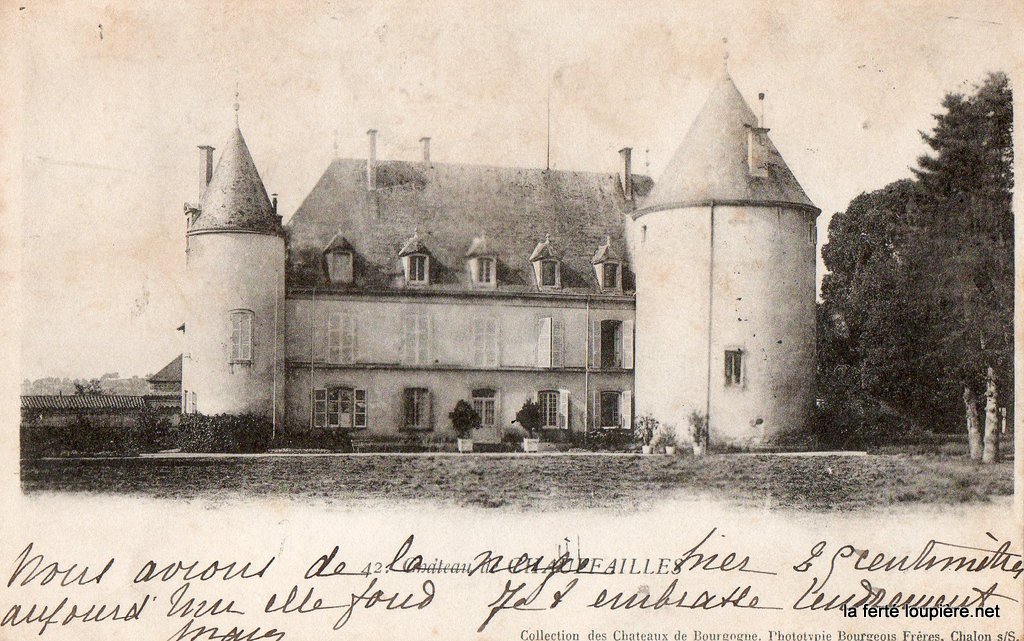 42. Château de CHAUFFAILLES
Nous avions de la neige hier 25 centimètres
aujourd'hui elle fond Je t embrasse tendrement
la ferté loupière.net
Collection des Chateaux de Bourgogne. Phototypie Bourgeois Frères. Chalon s/S.